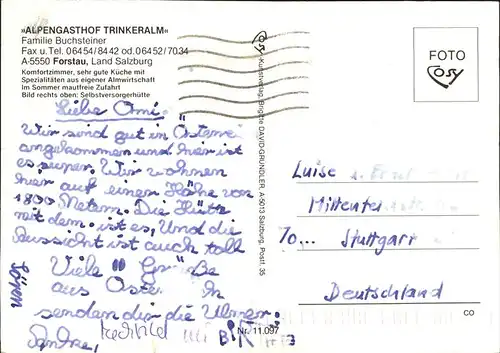 »ALPENGASTHOF TRINKERALM«
Familie Buchsteiner
Fax u. Tel. 06454/8442 od. 06452/7034
A-5550 Forstau, Land Salzburg
Komfortzimmer, sehr gute Küche mit
Spezialitäten aus eigener Almwirtschaft
Im Sommer mautfreie Zufahrt
Bild rechts oben: Selbstversorgerhütte
Liebe Omi,
Wir sind gut in
angekommen und hier ist
es super. Wir wohnen
hier auf einer Höhe von
1800 Metern. Die
mit dem ist es, Und die
Aussicht ist auch toll
Viele Grüße
aus
senden dir die Ulmer.
Sören
Cosy-Kunstverlag, Brigitte DAVID-GRÜNDLER, A-5013 Salzburg, Postf. 35
FOTO
Cosy
Luise
70... Stuttgart
Deutschland
CO
Nr. 11.097